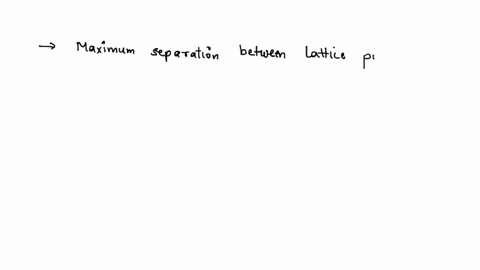 → Maximum separation between lattice